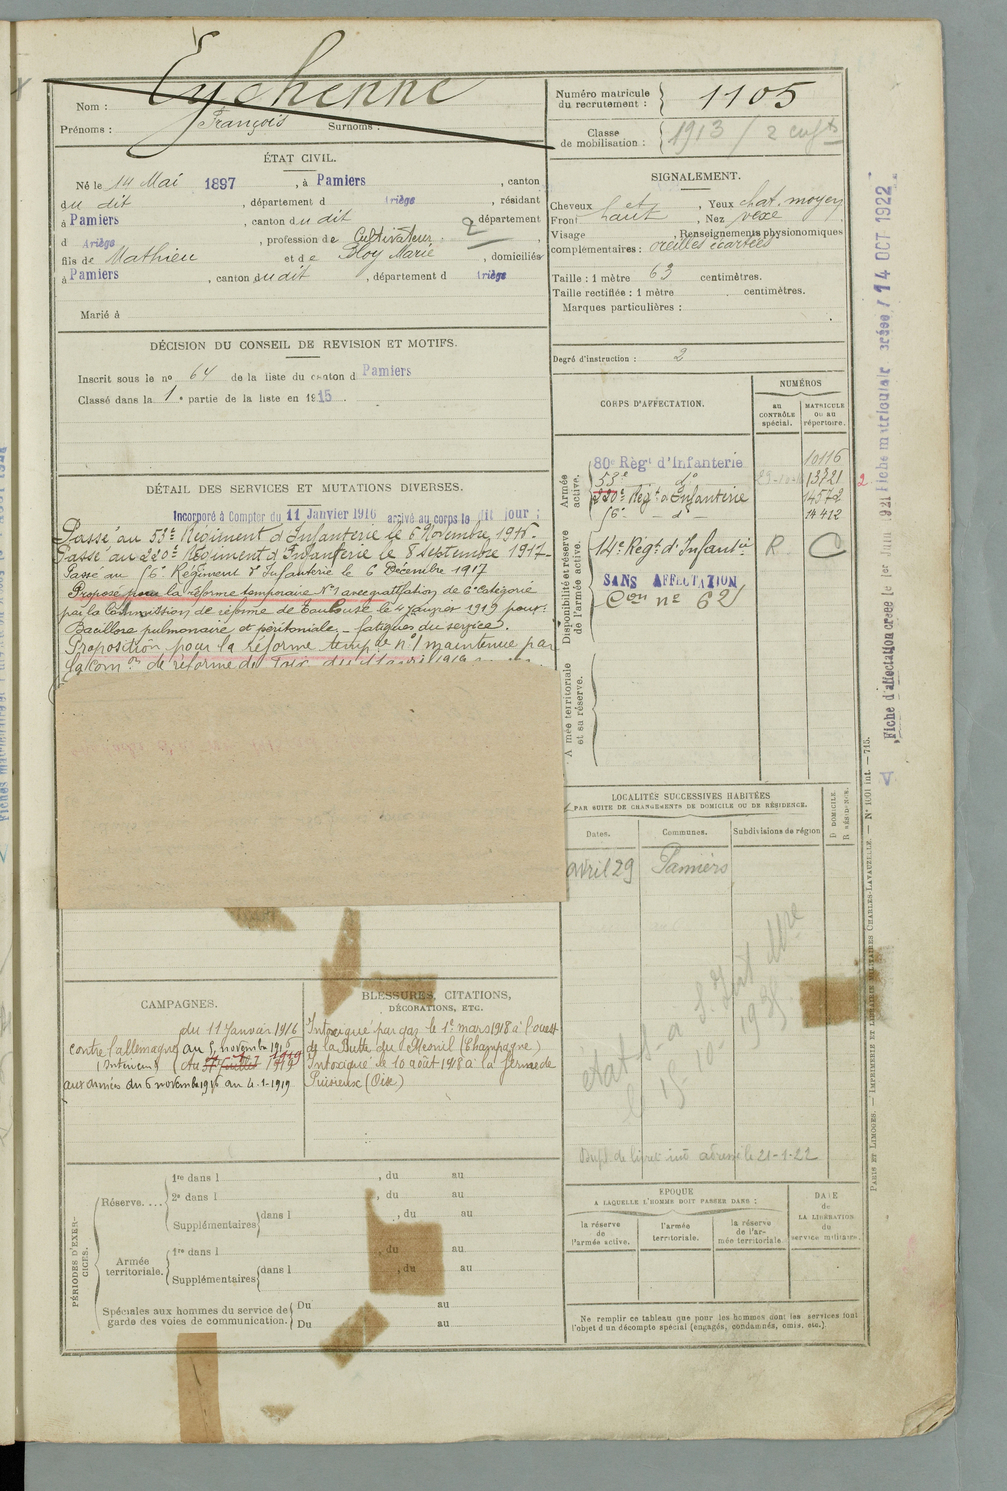 Eychenne
Nom :
Prénoms : François Surnoms :
Numéro matricule du recrutement : 1105
Classe de mobilisation : 1913 / 2
ÉTAT CIVIL.
Né le 14 Mai 1897, à Pamiers, canton
du dit, département d Ariège, résidant
à Pamiers, canton du dit 2 département
d Ariège, profession de Cultivateur,
fils de Mathieu et de Eloy Marie, domiciliés
à Pamiers, canton du dit, département d Ariège
Marié à
SIGNALEMENT.
Cheveux chat, Yeux chat. moyen
Front haut, Nez vexe
Visage , Renseignements physionomiques
complémentaires : oreilles écartées
Taille : 1 mètre 63 centimètres.
Taille rectifiée : 1 mètre centimètres.
Marques particulières :
Degré d'instruction : 2
DÉCISION DU CONSEIL DE REVISION ET MOTIFS.
Inscrit sous le no 64 de la liste du canton d Pamiers
Classé dans la 1e partie de la liste en 1915.
DÉTAIL DES SERVICES ET MUTATIONS DIVERSES.
Incorporé à Compter du 11 Janvier 1916 arrivé au corps le dit jour ;
Passé au 53e Régiment d'Infanterie le 6 Novembre 1916.
Passé au 220e Régiment d'Infanterie le 8 septembre 1917
Passé au 16e Régiment d'Infanterie le 6 Décembre 1917
Proposé pour la réforme temporaire N°1 avec gratification de 6e catégorie
par la Commission de réforme de Toulouse le 4 Janvier 1919 pour :
Bacillose pulmonaire et péritonéale - fatigues du service.
Proposition pour la réforme tempre n°1 maintenue par
la com.on de réforme de Foix du 11 avril 1919
CORPS D'AFFECTATION.
NUMÉROS
au CONTRÔLE spécial.
MATRICULE ou au répertoire.
Armée active.
80e Régt d'Infanterie 10116
53e do 13721 2
220e Régt d'Infanterie 14572
16e - do - 14412
Disponibilité et réserve de l'armée active.
14e Régt d'Infanterie R C
SANS AFFECTATION
Con no 62
Armée territoriale et sa réserve.
LOCALITÉS SUCCESSIVES HABITÉES
PAR SUITE DE CHANGEMENTS DE DOMICILE OU DE RÉSIDENCE.
Dates. Communes. Subdivisions de région
D. DOMICILE.
R. RÉSIDENCE.
avril 29 Pamiers
le 15-10-1935
Dupl. de livret ind adressé le 21-1-22
CAMPAGNES.
contre l'allemagne
du 11 Janvier 1916
au 5 novembre 1916
(Intérieur)
aux armées du 6 novembre 1916 au 4-1-1919
BLESSURES, CITATIONS,
DÉCORATIONS, ETC.
Intoxiqué par gaz le 1er mars 1918 à l'ouest
de la Butte du Mesnil (Champagne)
Intoxiqué le 10 août 1918 à la ferme de
Puiseux (Oise)
PÉRIODES D'EXERCICES.
Réserve....
1re dans l , du au
2e dans l , du au
Supplémentaires dans l , du au
Armée territoriale.
1re dans l , du au
Supplémentaires dans l , du au
Spéciales aux hommes du service de garde des voies de communication. Du au
Du au
ÉPOQUE
A LAQUELLE L'HOMME DOIT PASSER DANS :
la réserve de l'armée active.
l'armée territoriale.
la réserve de l'armée territoriale.
DATE de LA LIBÉRATION du service militaire.
Ne remplir ce tableau que pour les hommes dont les services font
l'objet d'un décompte spécial (engagés, condamnés, omis, etc.)
PARIS ET LIMOGES. — IMPRIMERIE ET LIBRAIRIE MILITAIRES CHARLES-LAVAUZELLE. — N° 1001 int. — 715.
Fiche d'affectation créée le 1er Juin 1921 Fiche matriculaire créée / 14 OCT 1922